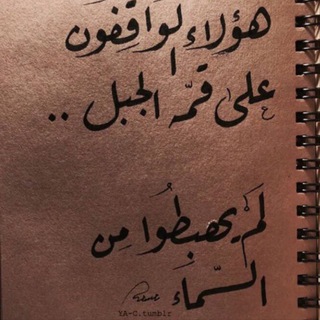 هؤلاءِ الواقِفون
على قمّه الجبل ..
لَمْ يهبطُوا مِن
السّماءِ
YA-C.tumblr